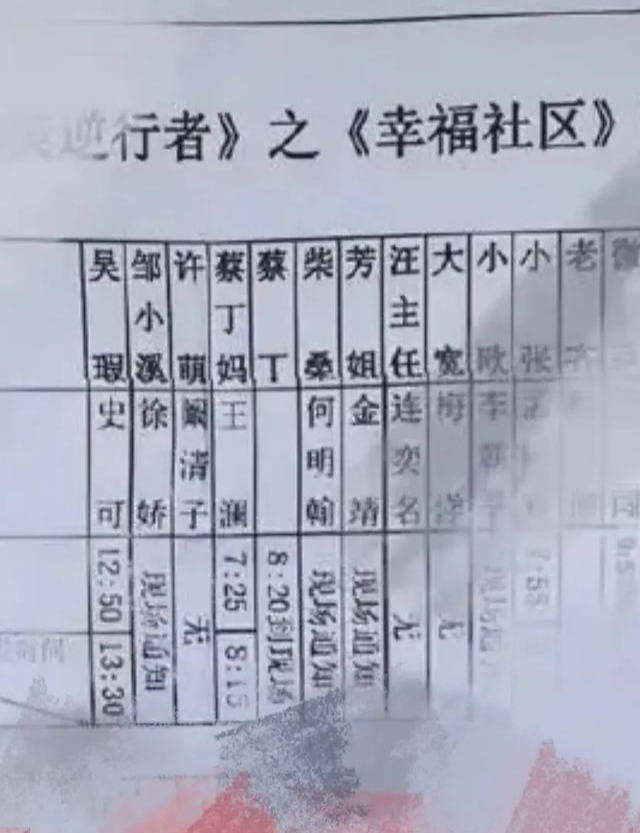 逆行者》之《幸福社区》
吴瑕 邹小溪 许萌 蔡丁妈 蔡丁 柴桑 芳姐 汪主任 大宽 小欧 小张 老
史可 徐娇 阚清子 王澜 何明翰 金靖 连奕名 梅洋 李
12:50 现场通知 无 7:25 8:20到现场 现场通知 现场通知 无 无 现场通 7:55
时间 13:30 8:15